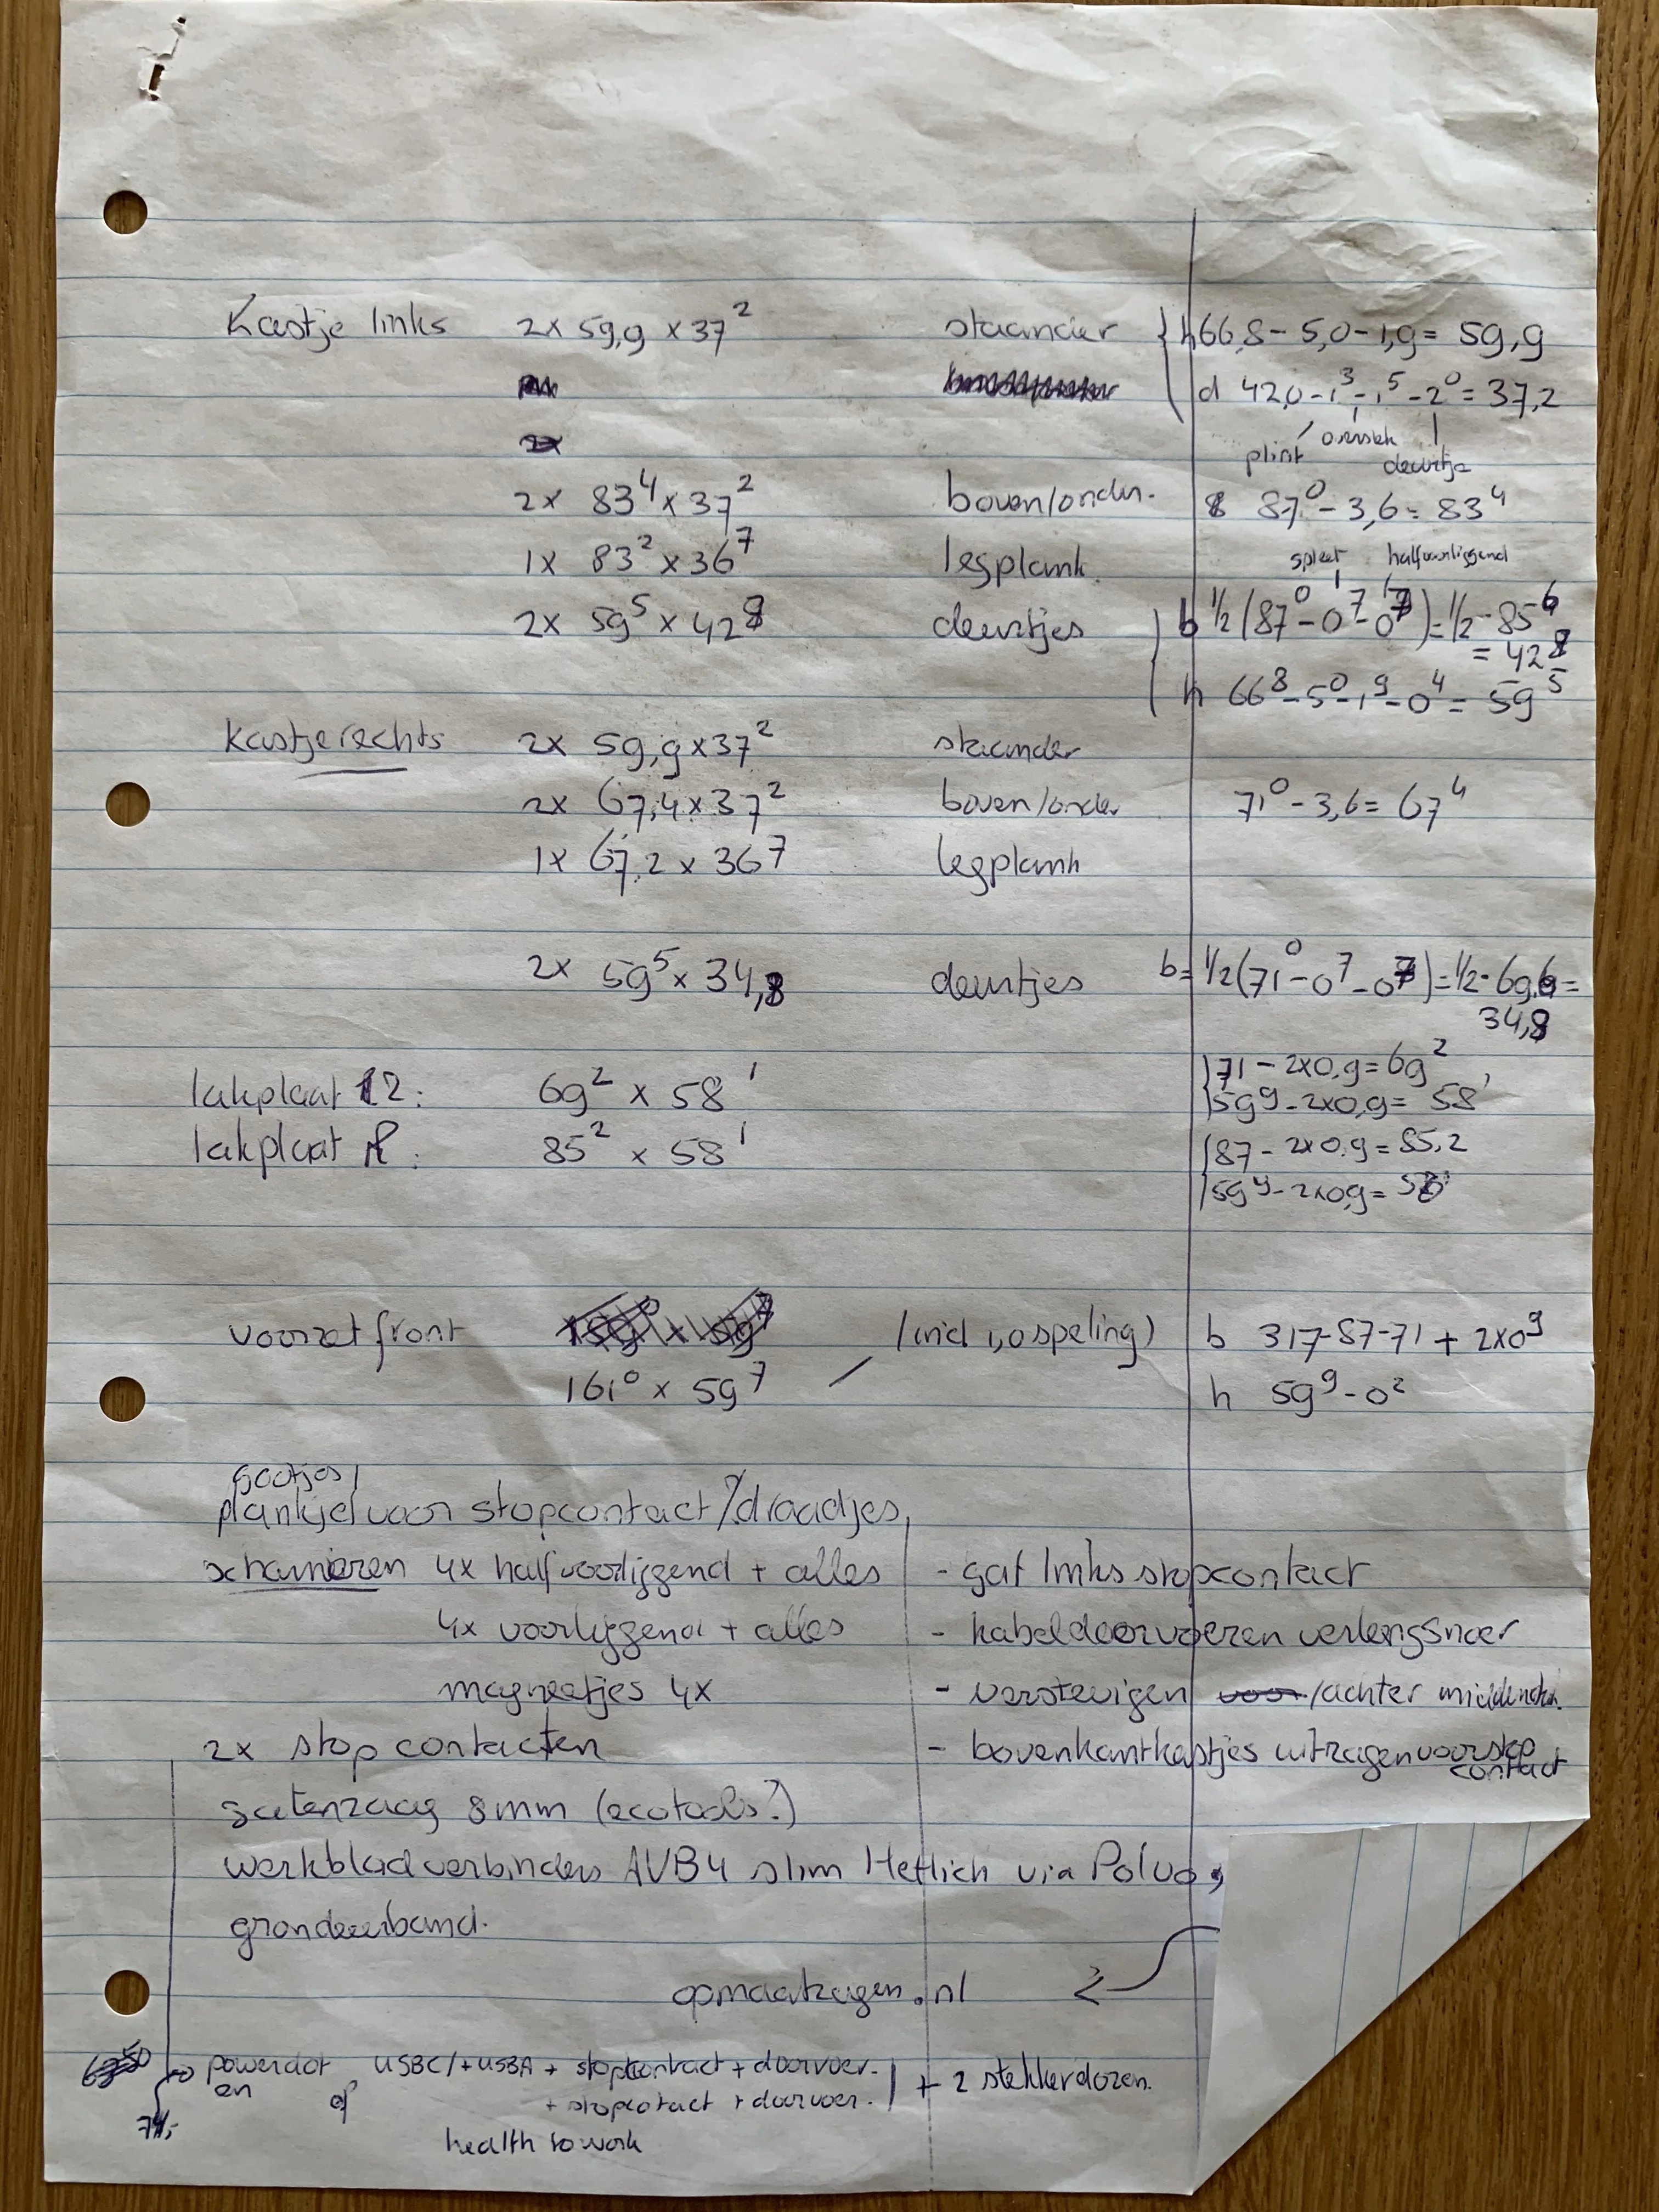 Kastje links 2x 59,9 x 37² staander { h 66,8 - 5,0 - 1,9 = 59,9
d 42,0 - 1³ - 1⁵ - 2⁰ = 37,2
plint overstek deurtje
2x 83⁴ x 37² boven/onder. 87⁰ - 3,6 = 83⁴
spleet halfvoorliggend
1x 83² x 36⁷ legplank
2x 59⁵ x 428 deurtjes b ½ (87⁰ - 0⁷ - 0⁷) = ½ · 85⁶
= 428
h 66⁸ - 5⁰ - 1⁹ - 0⁴ = 59⁵
Kastje rechts 2x 59,9 x 37² staander
2x 67,4 x 37² boven/onder 71⁰ - 3,6 = 67⁴
1x 67,2 x 36⁷ legplank
2x 59⁵ x 34,8 deurtjes b = ½ (71⁰ - 0⁷ - 0⁷) = ½ · 69,6 =
34,8
71 - 2x0,9 = 69²
lakplaat 2: 69² x 58¹ 59⁹ - 2x0,9 = 58¹
lakplaat R: 85² x 58¹ 87 - 2x0,9 = 85,2
59⁹ - 2x0,9 = 58¹
voorzet front (incl 1,0 speling) b 317-87-71 + 2x0⁹
161⁰ x 59⁷ h 59⁹ - 0²
gootjes /
plankje voor stopcontact/draadjes
scharnieren 4x halfvoorliggend + alles - gat links stopcontact
4x voorliggend + alles - kabeldoorvoeren verlengsnoer
magneetjes 4x - verstevigen voor/achter
2x stopcontacten - bovenkant kastjes uitzagen voor stop
contact
gatenzaag 8mm (ecotools?)
werkbladverbinders AVB4 slim Hettich via Polvo,
grondeerband.
opmaatzagen.nl
powerdot USBC/+USBA + stopcontact + doorvoer.
en of + stopcontact + doorvoer. + 2 stekkerdozen.
74,-
health to work